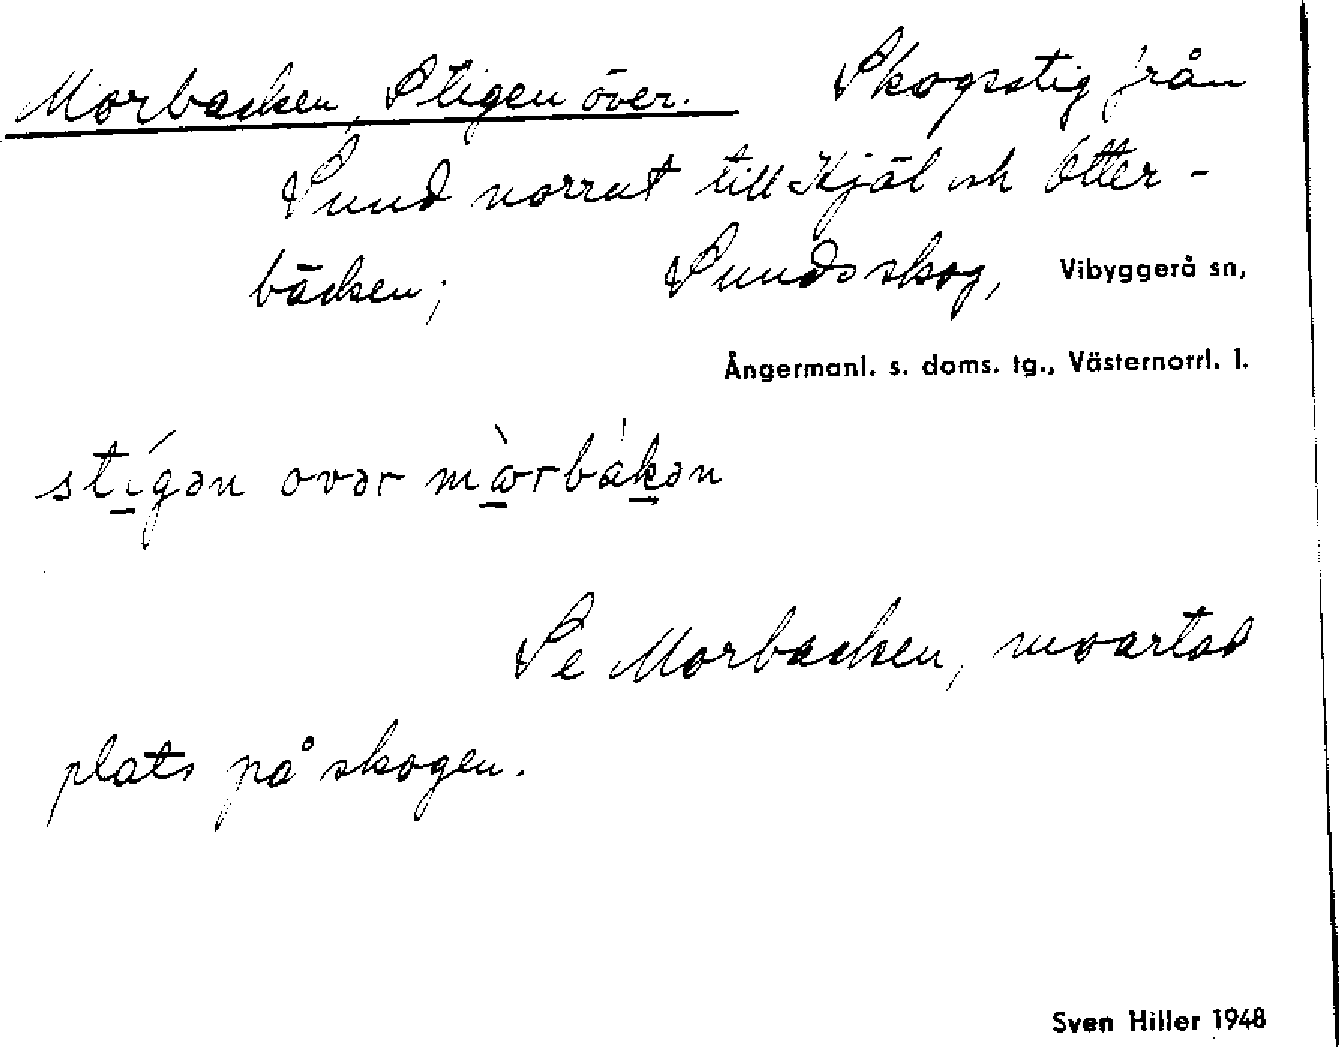 Morbacken, Stigen över. Skogsstig från
Sund norrut till Kjäl och Otter-
bäcken; Sundsskog, Vibyggerå sn,
Ångermanl. s. doms. tg., Västernorrl. l.
stígən ovər mòrbákən
Se Morbacken, moartad
plats på skogen.
Sven Hiller 1948